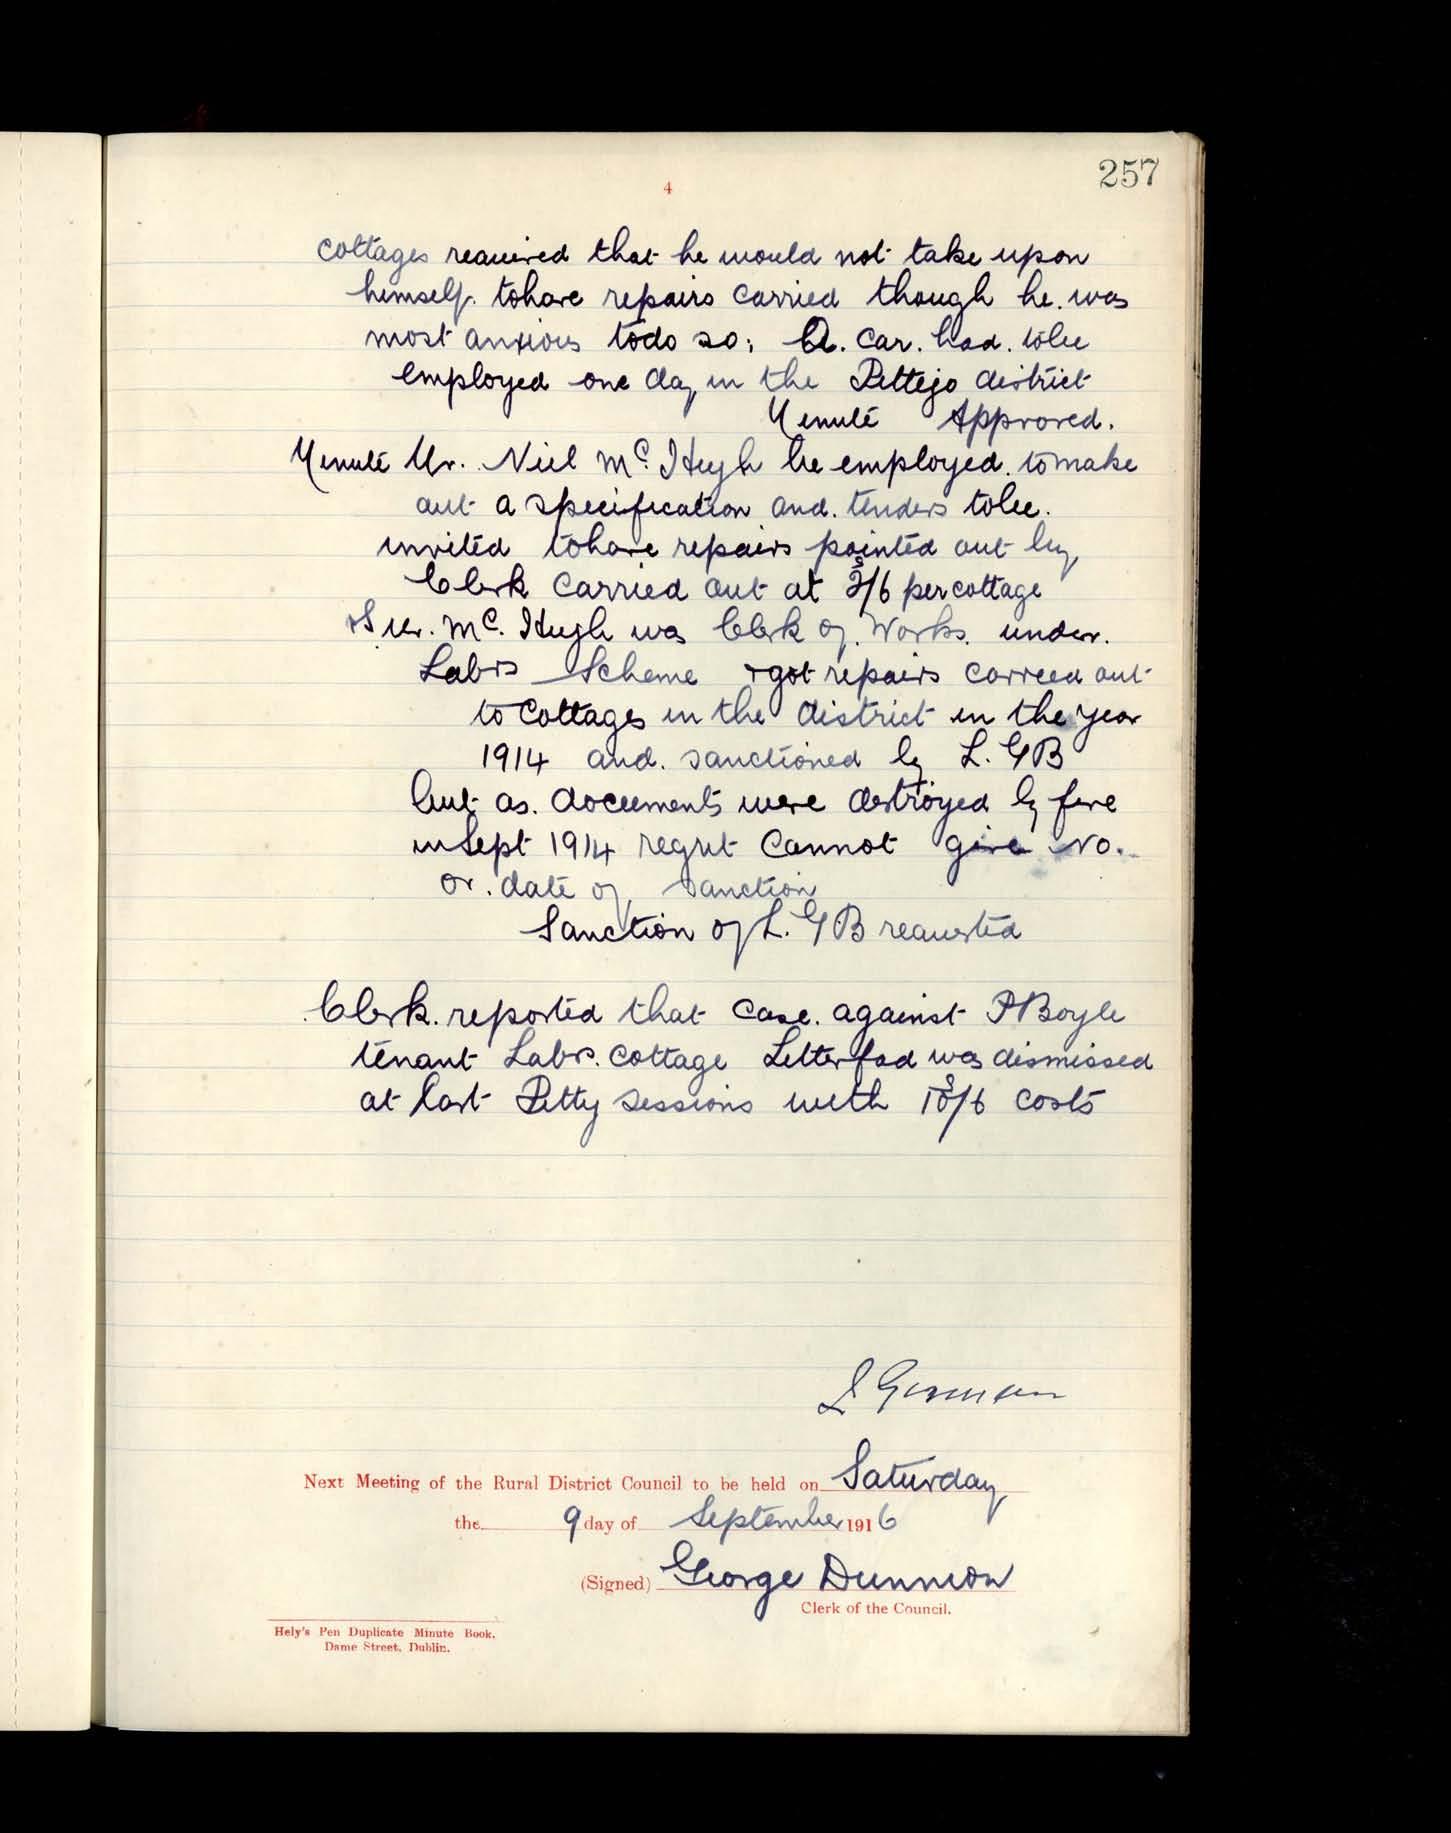 257
4
cottages required that he would not take upon
himself to have repairs carried though he was
most anxious to do so; A. car. had. to be
employed one day in the Pettigo district
Minute Approved.
Minute Mr. Niel Mc. Hugh be employed. to make
out a specification and. tenders to be.
invited to have repairs pointed out by
Clerk carried out at 2s/6 per cottage
Mr. Mc. Hugh was Clerk of. Works. under.
Labrs Scheme + got repairs carried out
to cottages in the district in the year
1914 and. sanctioned by L. G B
but as. documents were destroyed by fire
in Sept 1914 regret cannot give No.
or. date of sanction
Sanction of L. G B requested
Clerk. reported that case. against P Boyle
tenant Labr. cottage Letterfad was dismissed
at last Petty sessions with 10s/6 costs
Next Meeting of the Rural District Council to be held on Saturday
the 9 day of September 1916
(Signed) George Dunnion
Clerk of the Council.
Hely's Pen Duplicate Minute Book.
Dame Street, Dublin.